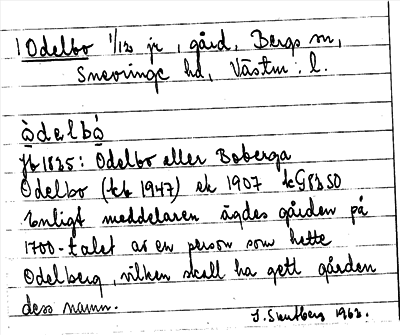 1 Odelbo 1/12 jr, gård, Bergs sn,
Snevringe hd, Västm. l.
òdelbó
jb 1825: Odelbo eller Boberga
Odelbo (tk 1947) ek 1907 kG82SO
Enligt meddelaren ägdes gården på
1700-talet av en person som hette
Odelberg, vilken skall ha gett gården
dess namn.
1962.